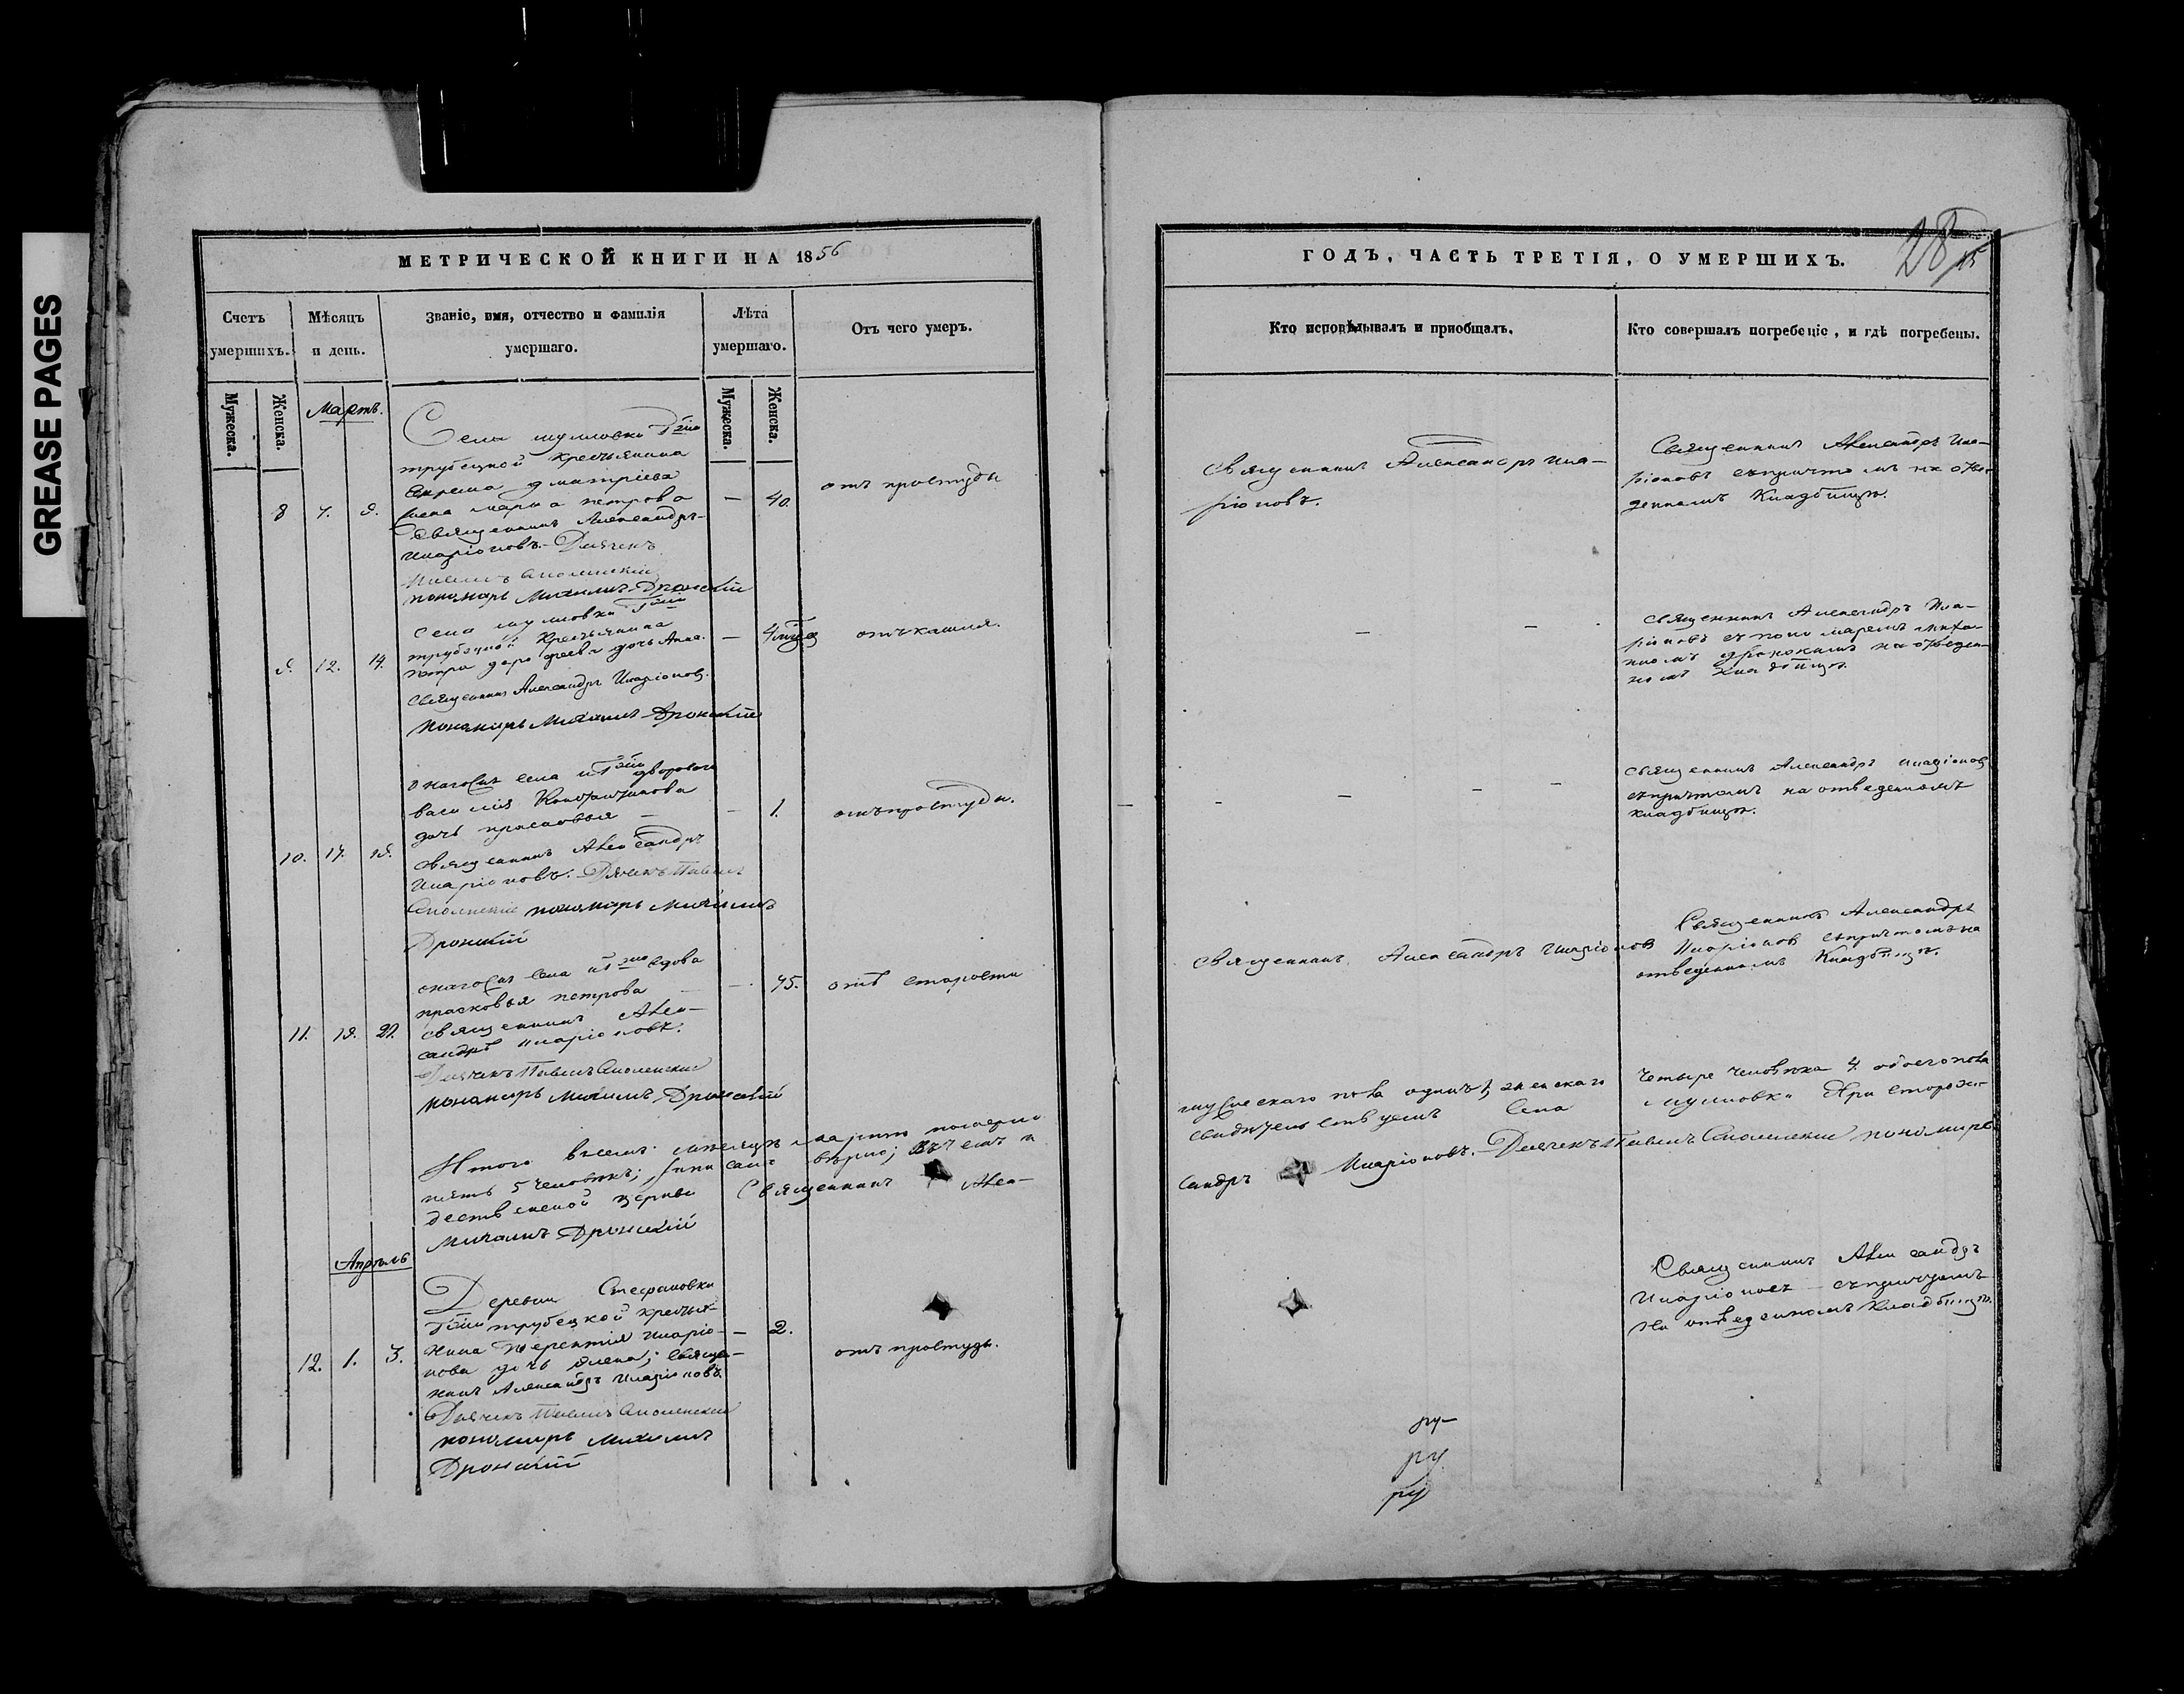 GREASE PAGES
МЕТРИЧЕСКОЙ КНИГИ НА 1856
Счетъ умершихъ.
Мѣсяцъ и день.
Званіе, имя, отчество и фамилія умершаго.
Лѣта умершаго.
Отъ чего умеръ.
Мужеска.
Женска.
Мужеска.
Женска.
Мартъ.
Села
трубецкой крестьянина
дмитріева
жена марѳа петрова
Священникъ Александръ
Иларіоновъ. Дьячекъ
Павелъ Смоленскій
пономарь Михаилъ Дронскій
8 7. 9. — 40. отъ простуды
Села
трубецкой крестьянина
петра дорофеева дочь Анна.
Священникъ Александръ Иларіоновъ.
пономарь Михаилъ Дронскій
9. 12. 14. — отъ кашля.
села двороваго
василія Константинова
дочь прасковья —
Священникъ Александръ
Иларіоновъ. Дьячекъ Павелъ
Смоленскій пономарь Михаилъ
Дронскій
10. 17. 19. — 1. отъ простуды.
села вдова
прасковья петрова
священникъ Алек-
сандръ Иларіоновъ.
Дьячекъ Павелъ Смоленскій
пономарь Михаилъ Дронскій
11. 19. 21. — 45. отъ старости
Итого въ мѣсяцѣ мартѣ померло
пять 5 человѣкъ; вѣрно; въ чемъ и
церкви Священникъ Алек-
Михаилъ Дронскій
Апрѣль
Деревни Стефановки
трубецкой крестья-
нина терентія иларіо-
нова дочь елена; Священ-
никъ Александръ Иларіоновъ.
Дьячекъ Павелъ Смоленскій
пономарь Михаилъ
Дронскій
12. 1. 3. — 2. отъ простуды.
ГОДЪ, ЧАСТЬ ТРЕТІЯ, О УМЕРШИХЪ.
28
15
Кто исповѣдывалъ и приобщалъ.
Кто совершалъ погребеніе, и гдѣ погребены.
Священникъ Александръ Ила-
ріоновъ.
Священникъ Александръ Ила-
ріоновъ съ причтомъ на отве-
денномъ Кладбищѣ.
— —
священникъ Александръ Ила-
ріоновъ съ пономаремъ миха-
иломъ дронскимъ на отведен-
номъ кладбищѣ.
— — — — —
священникъ Александръ иларіоновъ
съ причтомъ на отведенномъ
кладбищѣ.
Священникъ Александръ Иларіоновъ
Священникъ Александръ
Иларіоновъ съ причтомъ на
отведенномъ Кладбищѣ.
мужескаго пола одинъ 1, женскаго
четыре человѣка 4. обоего пола
свидѣтельствуемъ Села
При
сандръ Иларіоновъ. Дьячекъ Павелъ Смоленскій пономарь
Священникъ Александръ
Иларіоновъ съ причтомъ
на отведенномъ Кладбищѣ.
ру-
ру
ру